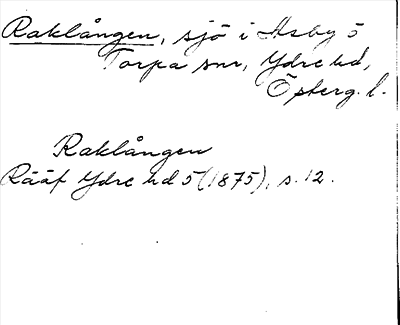 Raklången, sjö i Asby o
Torpa snr, Ydre hd,
Österg. l.
Raklången
Rääf Ydre hd 5 (1875), s. 12.